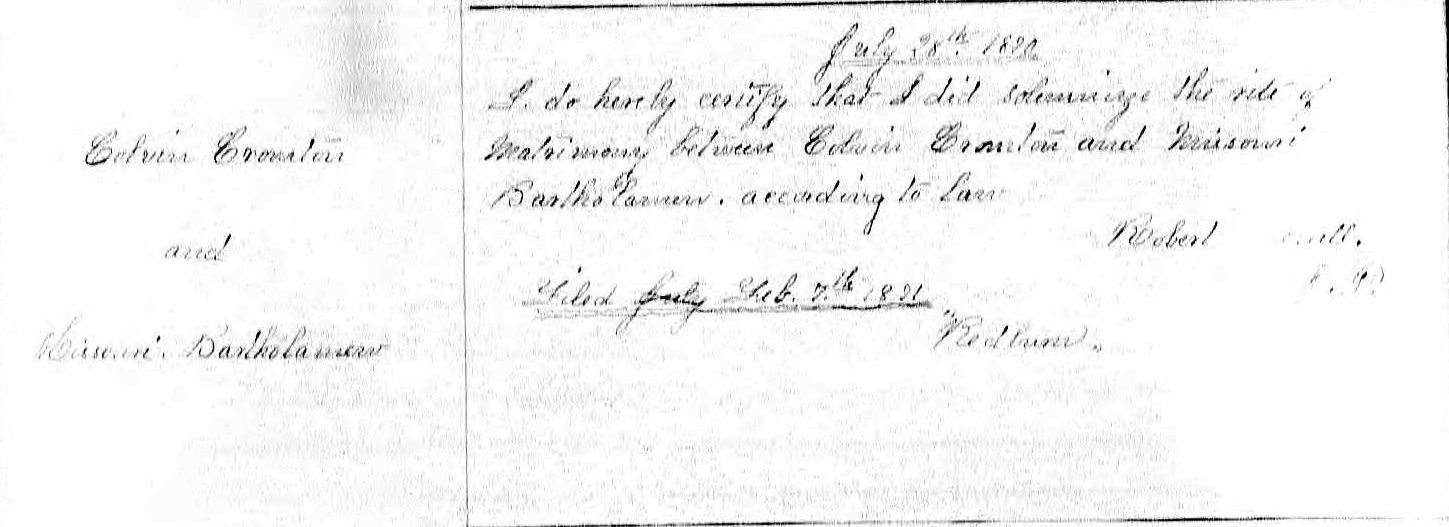 July 28th 1890
I do hereby certify that I did solemnize the rite of
Matrimony between Edwin Cromton and Missouri
Bartholamew. according to Law
Robert
Filed July Feb. 7th 1891
"Redlum"
Edwin Cromton
and
Missouri Bartholamew